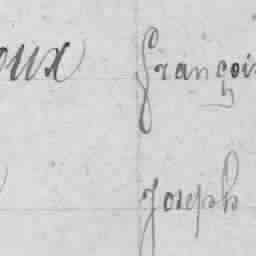 oux françois
joseph